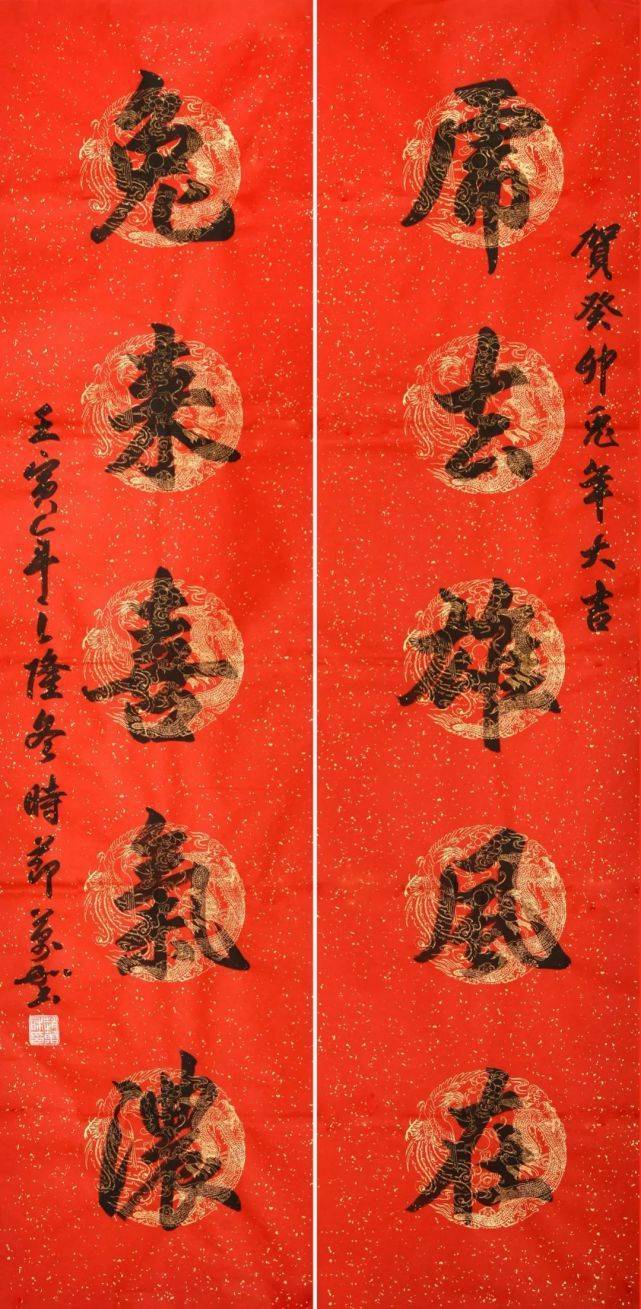 賀癸卯兎年大吉
虎去雄風在
兔來喜氣濃
壬寅年之隆冬時節